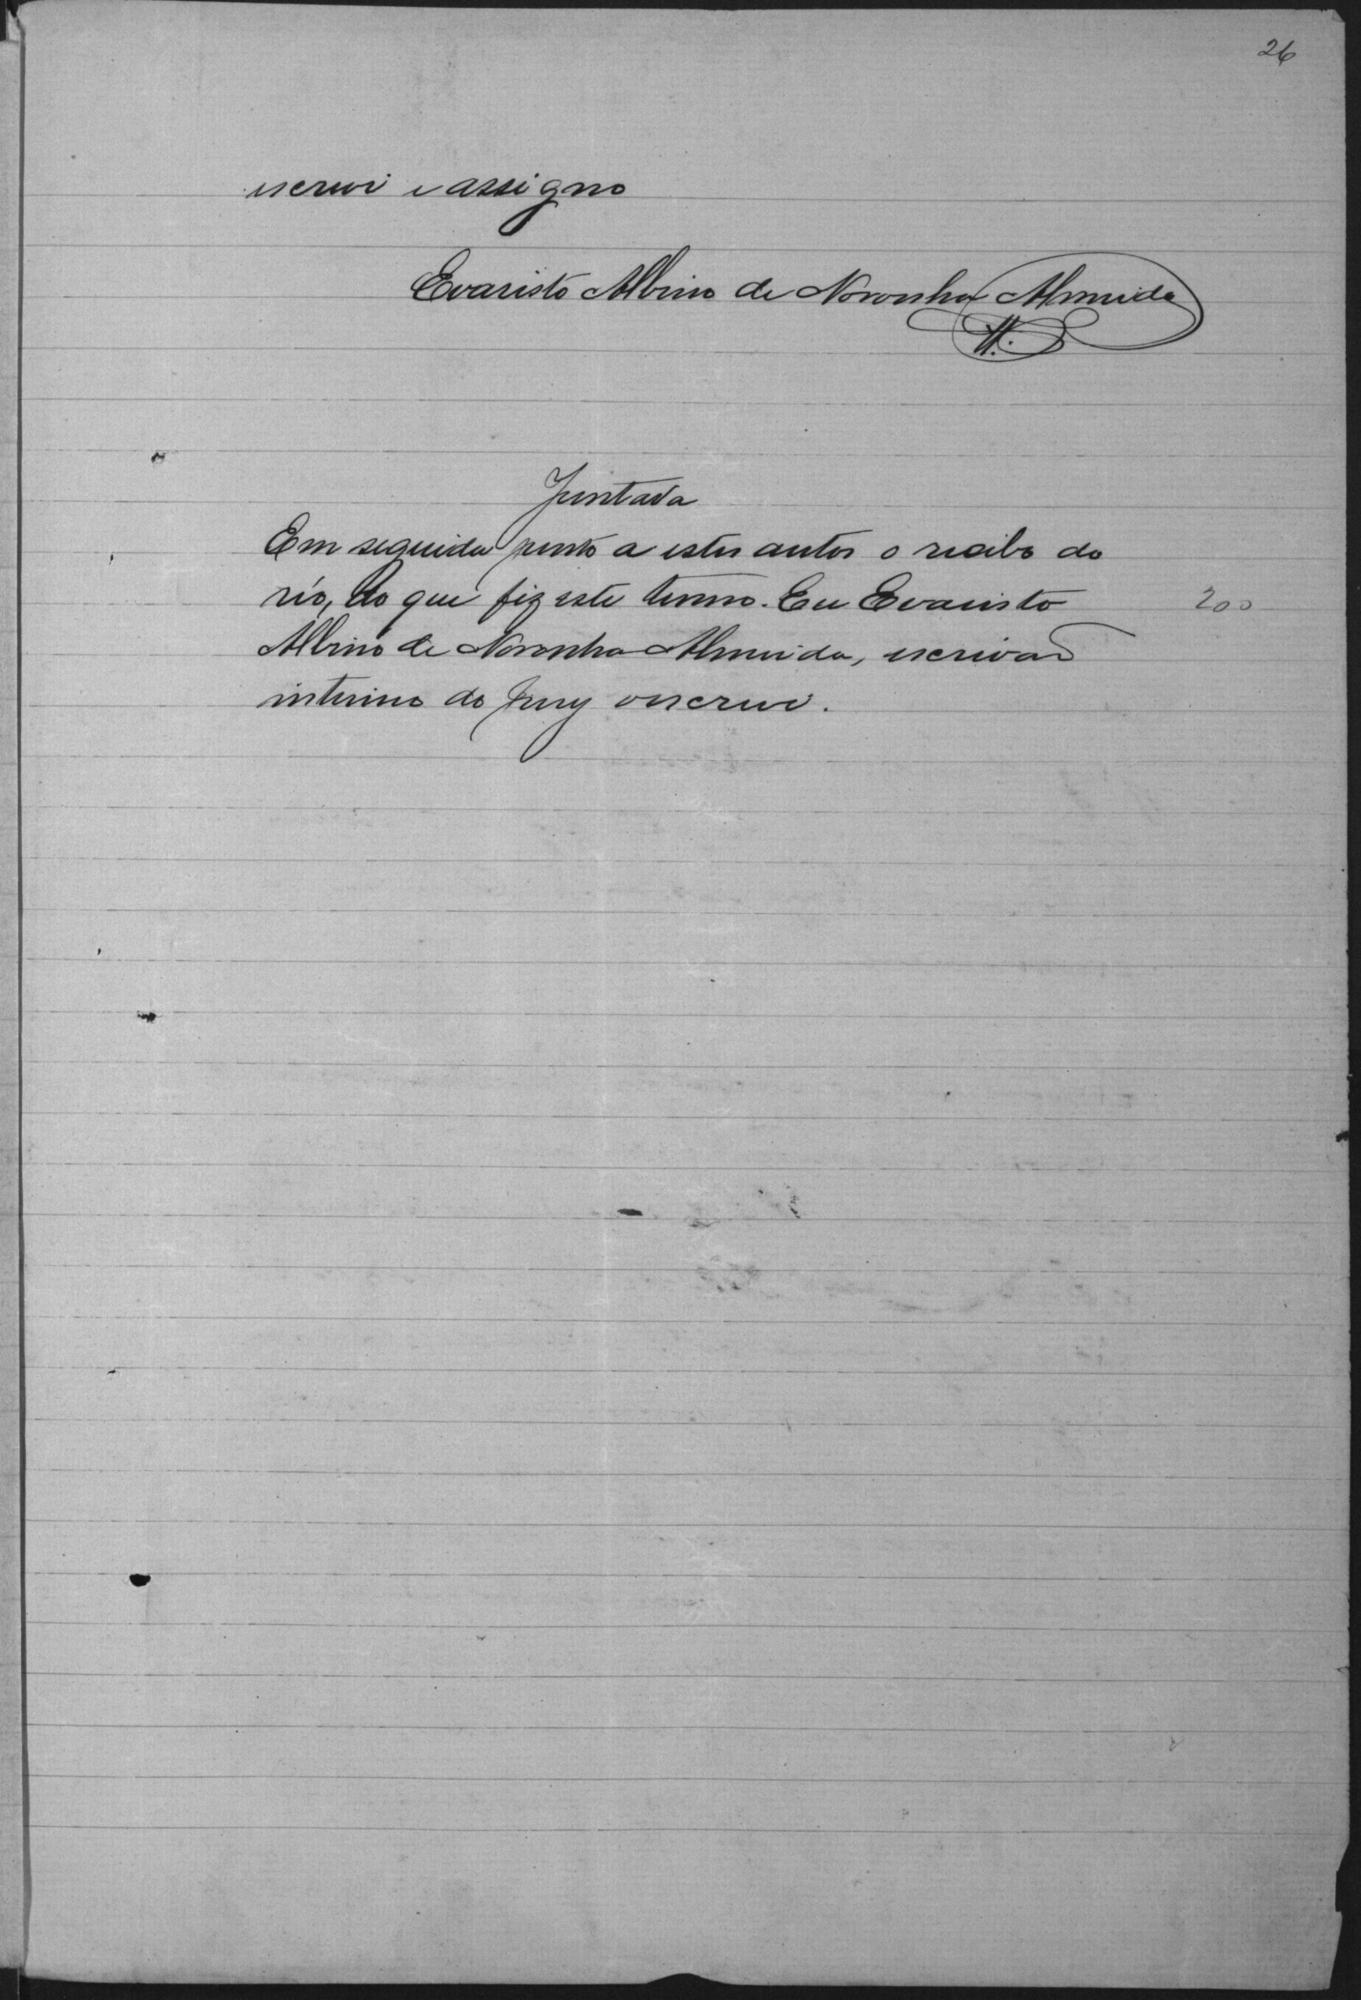 26
escrevi e assigno
Evaristo Albino de Noronha Almeida
Juntada
Em seguida junto a estes autos o recibo do
réo, do que fiz este termo. Eu Evaristo
200
Albino de Noronha Almeida, escrivão
interino do Jury o escrevi.